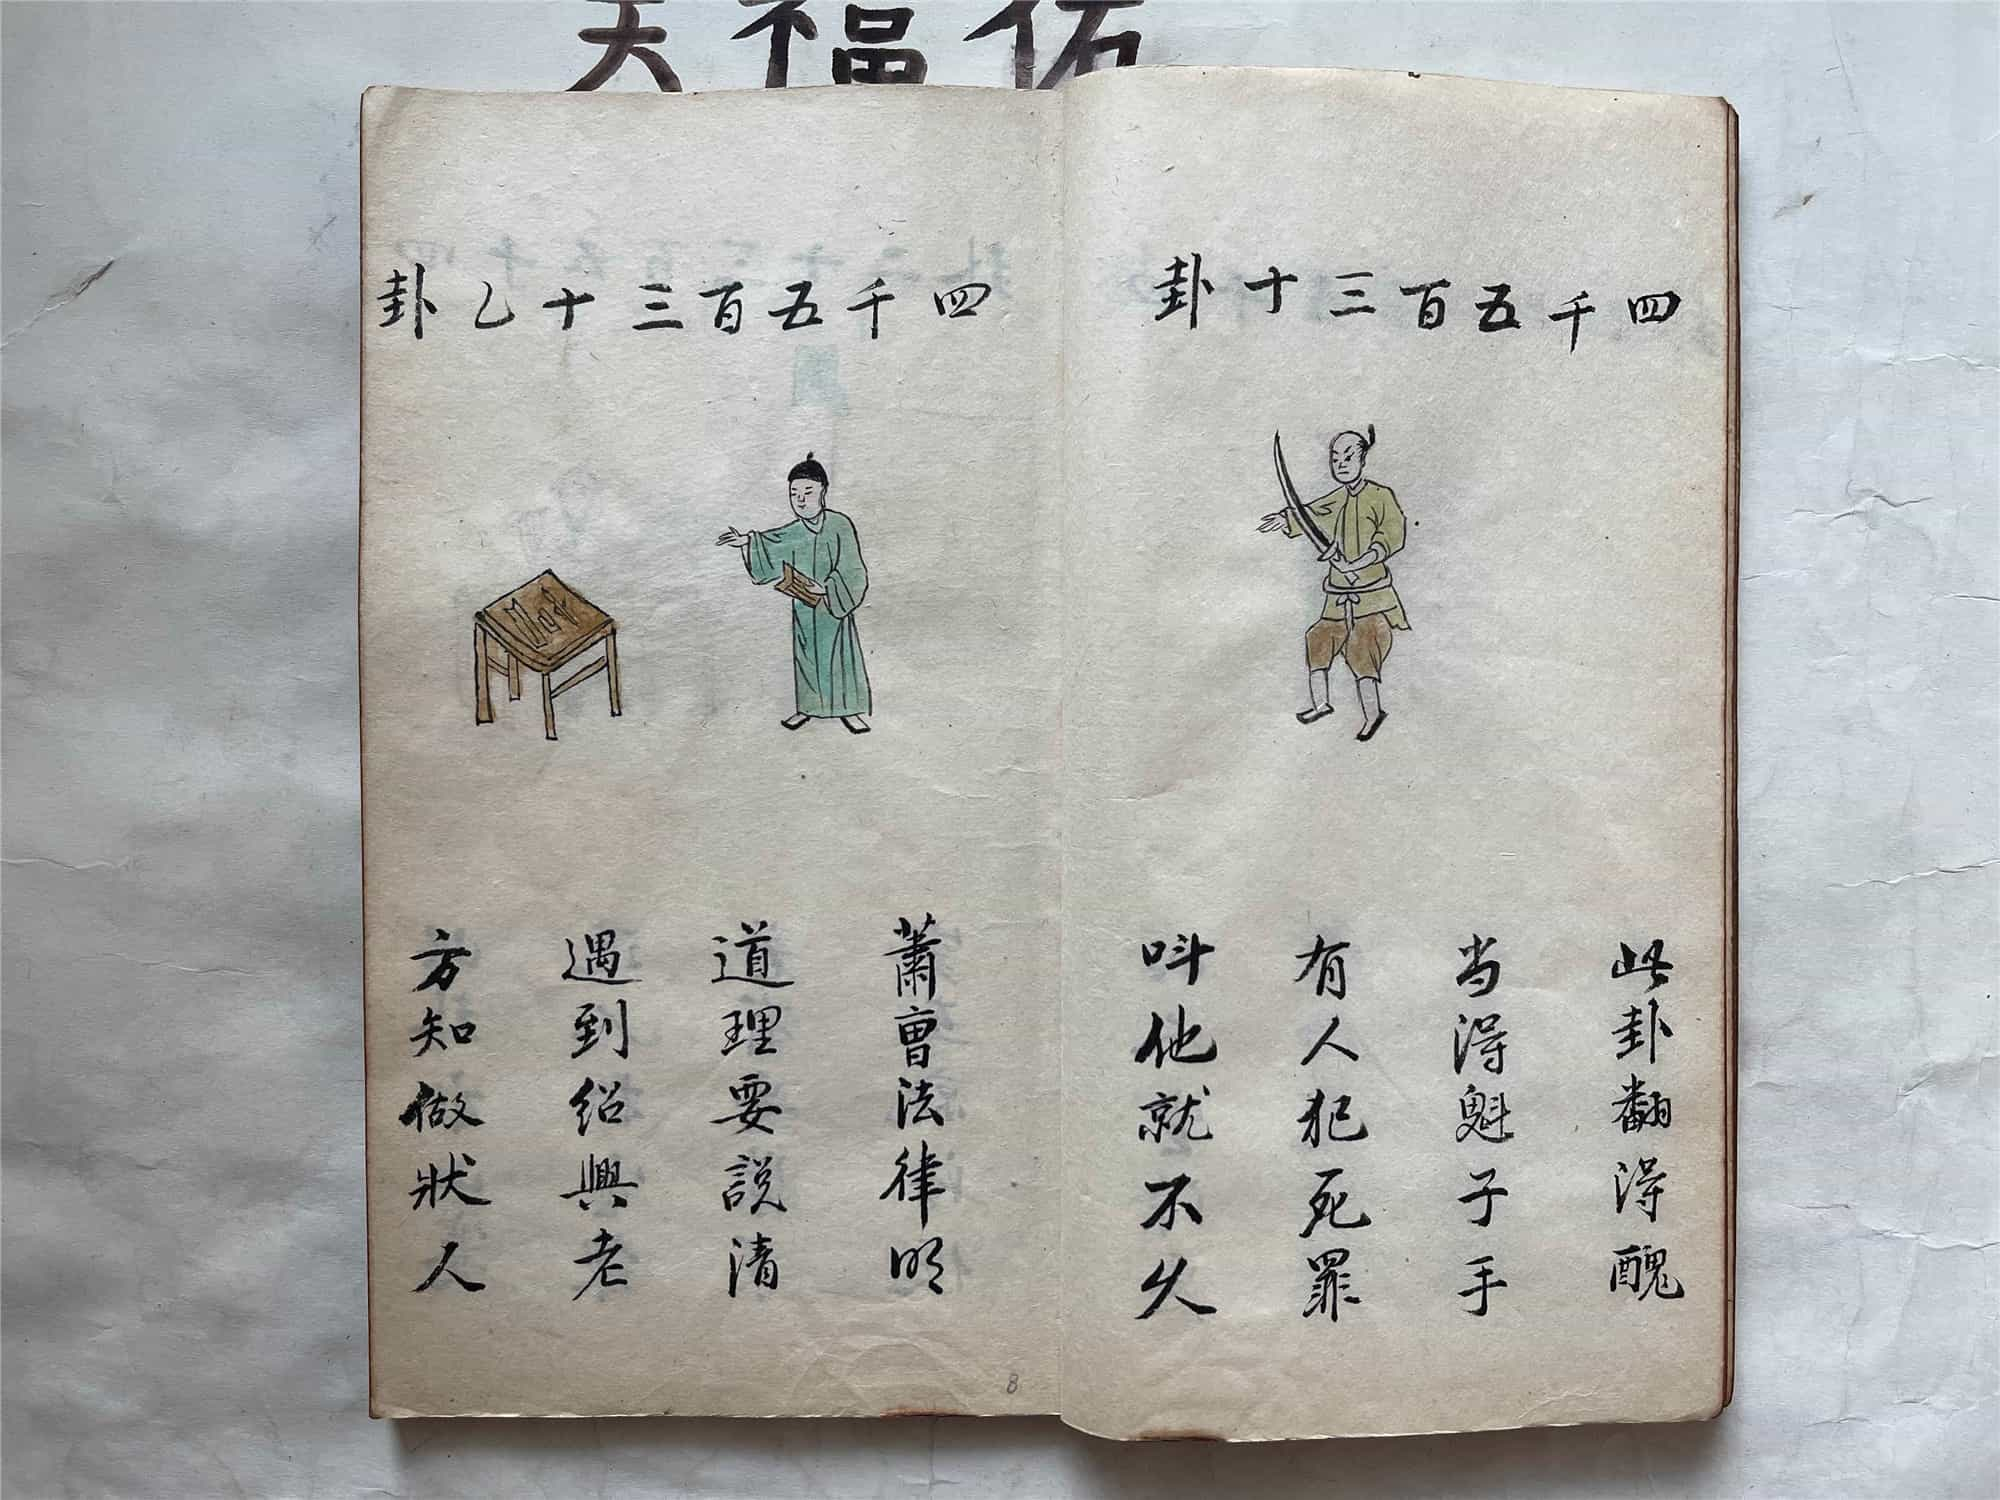 福佑
四千五百三十卦
此卦翻得醜
当得魁子手
有人犯死罪
呌他就不久
四千五百三十乙卦
蕭曹法律明
道理要説清
遇到绍興老
方知做狀人
8